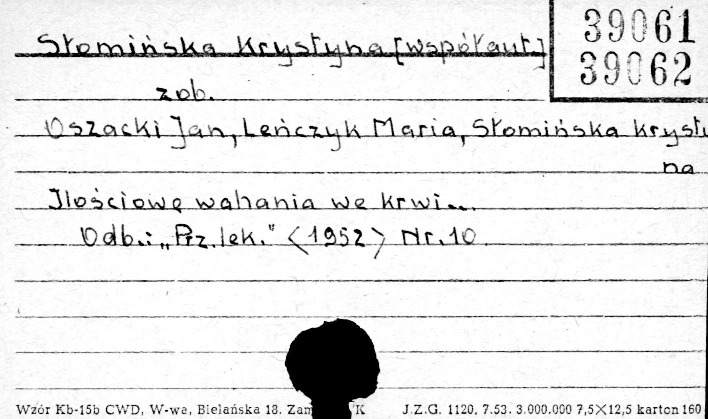 39061
39062
Słomińska Krystyna [współaut]
zob.
Oszacki Jan, Leńczyk Maria, Słomińska Krysty
na
Ilościowe wahania we krwi...
Odb.: „Prz. lek." <1952> Nr. 10
Wzór Kb-15b CWD, W-wa, Bielańska 18. Zam K J.Z.G. 1120. 7.53. 3.000.000 7,5×12,5 karton 160